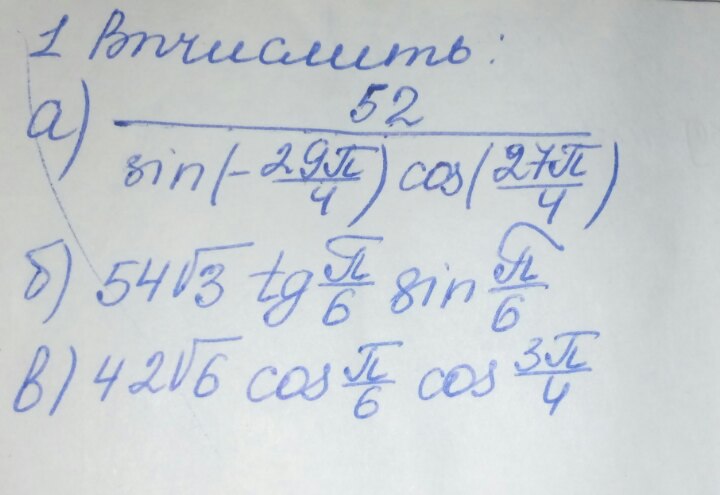 1 Вычислить:
а) 52 / (sin(-29π/4) cos(27π/4))
б) 54√3 tg π/6 sin π/6
в) 42√6 cos π/6 cos 3π/4